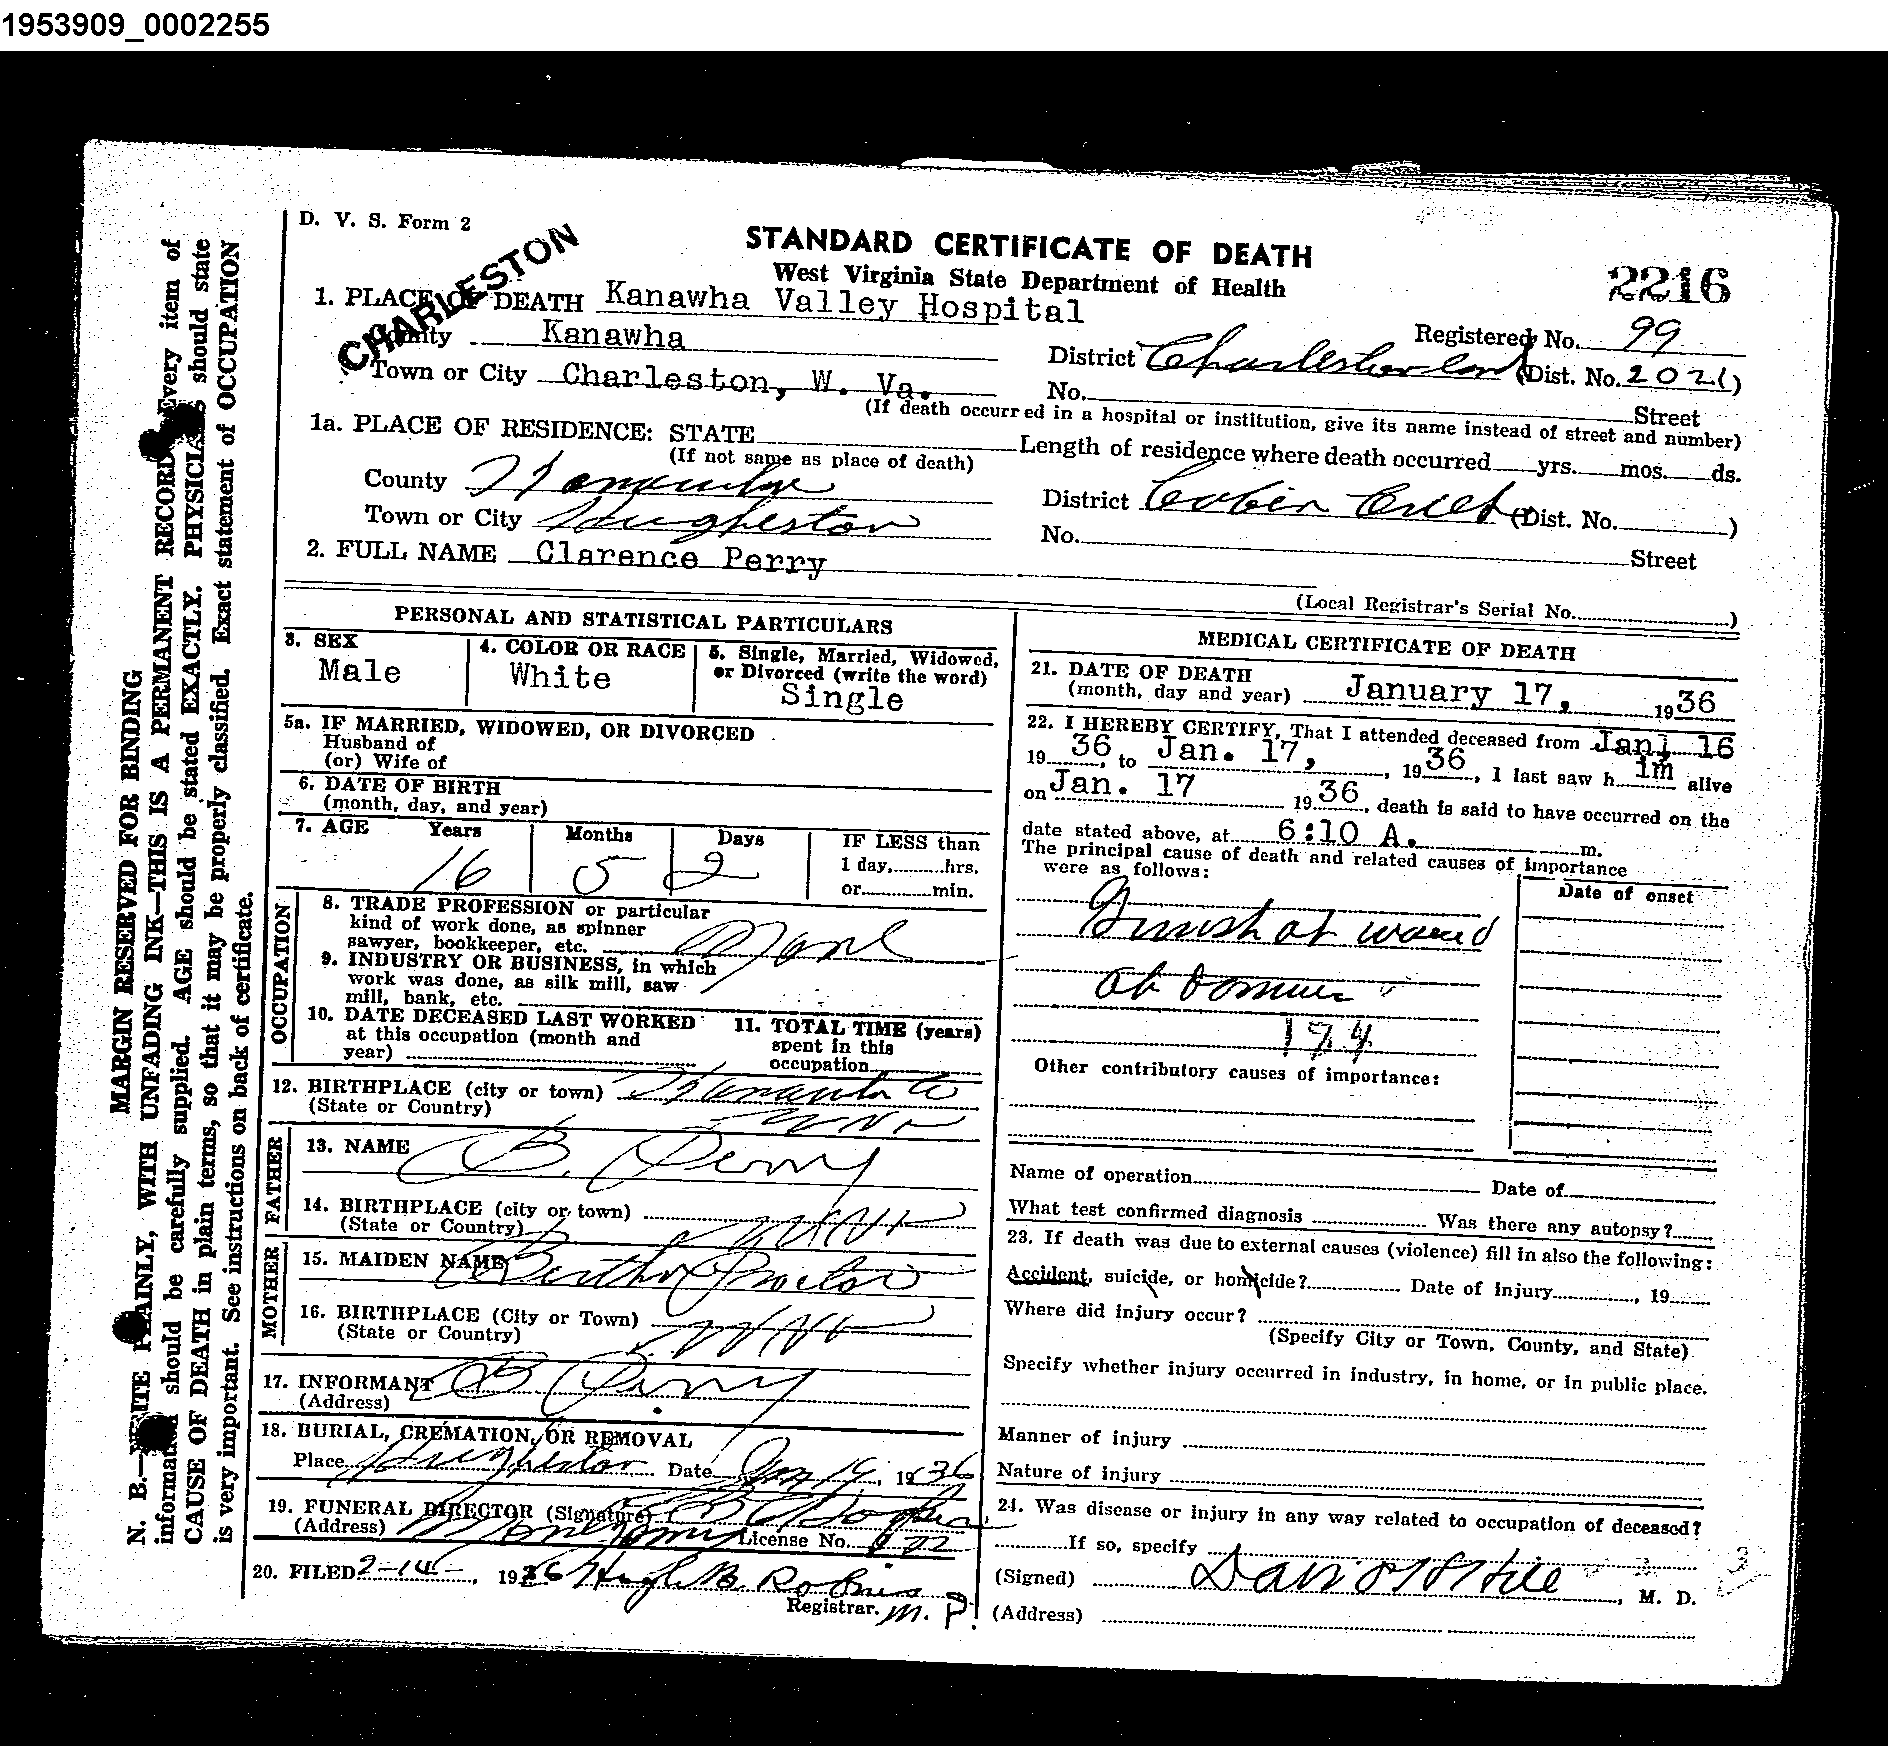 1953909_0002255
D. V. S. Form 2
CHARLESTON
STANDARD CERTIFICATE OF DEATH
West Virginia State Department of Health
2216
1. PLACE OF DEATH Kanawha Valley Hospital
Registered No. 99
County Kanawha
District Charleston (Dist. No. 2021)
Town or City Charleston, W. Va.
No. Street
(If death occurred in a hospital or institution, give its name instead of street and number)
1a. PLACE OF RESIDENCE: STATE
(If not same as place of death)
Length of residence where death occurred yrs. mos. ds.
County Kanawha
District Cabin Creek (Dist. No. )
Town or City Hugheston
No. Street
2. FULL NAME Clarence Perry
(Local Registrar's Serial No. )
PERSONAL AND STATISTICAL PARTICULARS
3. SEX
Male
4. COLOR OR RACE
White
5. Single, Married, Widowed,
or Divorced (write the word)
Single
5a. IF MARRIED, WIDOWED, OR DIVORCED
Husband of
(or) Wife of
6. DATE OF BIRTH
(month, day, and year)
7. AGE Years Months Days
16 5 2
IF LESS than
1 day, hrs.
or min.
OCCUPATION
8. TRADE PROFESSION or particular
kind of work done, as spinner
sawyer, bookkeeper, etc. None
9. INDUSTRY OR BUSINESS, in which
work was done, as silk mill, saw
mill, bank, etc.
10. DATE DECEASED LAST WORKED
at this occupation (month and
year)
11. TOTAL TIME (years)
spent in this
occupation
12. BIRTHPLACE (city or town) Kanawha Co
(State or Country) W Va
FATHER
13. NAME B. Perry
14. BIRTHPLACE (city or town)
(State or Country) W Va
MOTHER
15. MAIDEN NAME Bertha Proctor
16. BIRTHPLACE (City or Town)
(State or Country) W Va
17. INFORMANT B Perry
(Address)
18. BURIAL, CREMATION, OR REMOVAL
Place Hugheston Date Jan 19, 1936
19. FUNERAL DIRECTOR (Signature)
(Address) Montgomery License No.
20. FILED 2-14-, 1936 Hugh B. Robins
Registrar. M. D.
MEDICAL CERTIFICATE OF DEATH
21. DATE OF DEATH
(month, day and year) January 17, 1936
22. I HEREBY CERTIFY, That I attended deceased from Jan, 16
1936, to Jan. 17, , 1936, I last saw him alive
on Jan. 17 1936, death is said to have occurred on the
date stated above, at 6:10 A. m.
The principal cause of death and related causes of importance
were as follows:
Date of onset
Gunshot wound
abdomen
174
Other contributory causes of importance:
Name of operation Date of
What test confirmed diagnosis Was there any autopsy?
23. If death was due to external causes (violence) fill in also the following:
Accident, suicide, or homicide? Date of Injury , 19
Where did injury occur?
(Specify City or Town, County, and State)
Specify whether injury occurred in industry, in home, or in public place.
Manner of injury
Nature of injury
24. Was disease or injury in any way related to occupation of deceased?
If so, specify
(Signed) , M. D.
(Address)
MARGIN RESERVED FOR BINDING
N. B.—WRITE PLAINLY, WITH UNFADING INK—THIS IS A PERMANENT RECORD. Every item of
information should be carefully supplied. AGE should be stated EXACTLY. PHYSICIANS should state
CAUSE OF DEATH in plain terms, so that it may be properly classified. Exact statement of OCCUPATION
is very important. See instructions on back of certificate.